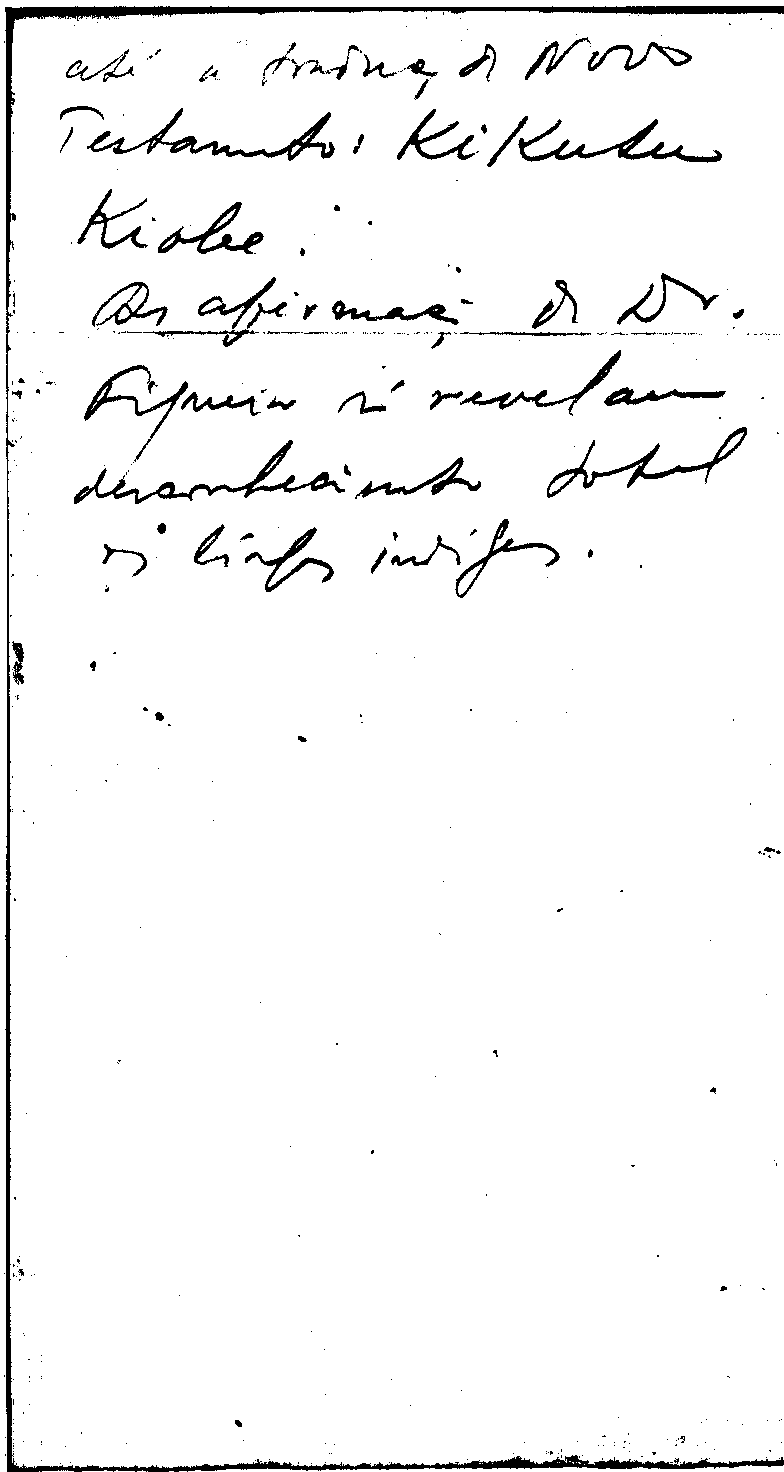 até à traduç. do Novo
Testamento: Ki Kutu
Kiobe.
As afirmaç. do Dr.
Figueira só revelam
desconhecimento total
línguas indígenas.